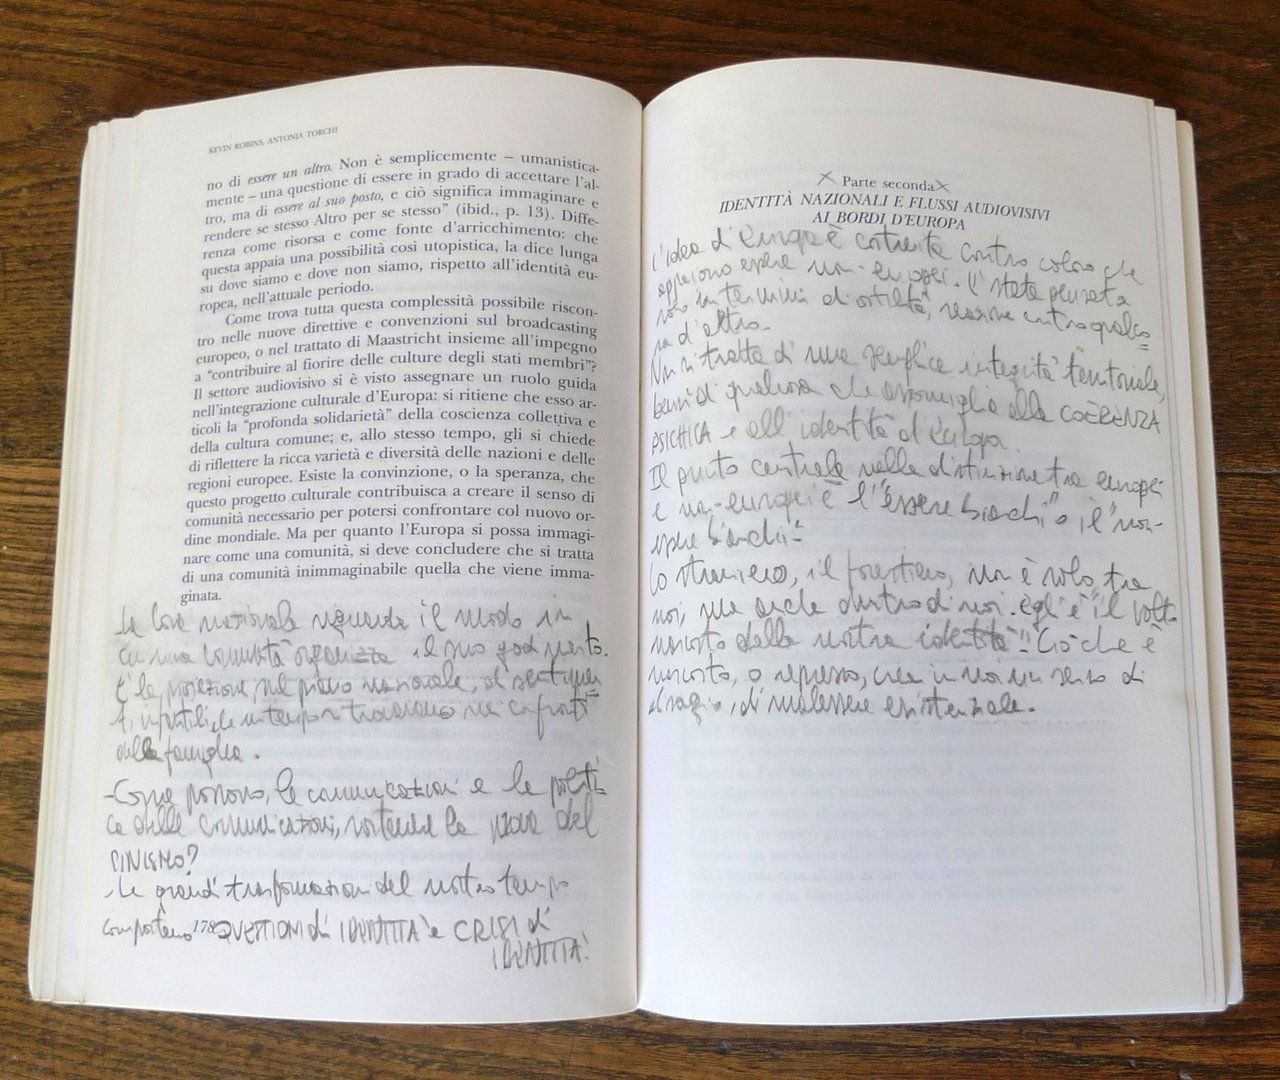 KEVIN ROBINS, ANTONIA TORCHI
no di essere un altro. Non è semplicemente – umanistica-
mente – una questione di essere in grado di accettare l'al-
tro, ma di essere al suo posto, e ciò significa immaginare e
rendere se stesso Altro per se stesso” (ibid., p. 13). Diffe-
renza come risorsa e come fonte d'arricchimento: che
questa appaia una possibilità così utopistica, la dice lunga
su dove siamo e dove non siamo, rispetto all'identità eu-
ropea, nell'attuale periodo.
Come trova tutta questa complessità possibile riscon-
tro nelle nuove direttive e convenzioni sul broadcasting
europeo, o nel trattato di Maastricht insieme all'impegno
a “contribuire al fiorire delle culture degli stati membri”?
Il settore audiovisivo si è visto assegnare un ruolo guida
nell'integrazione culturale d'Europa: si ritiene che esso ar-
ticoli la “profonda solidarietà” della coscienza collettiva e
della cultura comune; e, allo stesso tempo, gli si chiede
di riflettere la ricca varietà e diversità delle nazioni e delle
regioni europee. Esiste la convinzione, o la speranza, che
questo progetto culturale contribuisca a creare il senso di
comunità necessario per potersi confrontare col nuovo or-
dine mondiale. Ma per quanto l'Europa si possa immagi-
nare come una comunità, si deve concludere che si tratta
di una comunità inimmaginabile quella che viene imma-
ginata.
La cosa nazionale riguarda il modo in
cui una comunità organizza il suo godimento.
È la proiezione sul piano nazionale, di sentimen
ti infantili, che un tempo si trovavano nei confronti
della famiglia.
-Come possono, le comunicazioni e le politi
che delle comunicazioni, sostenere la prova del
CINISMO?
-Le grandi trasformazioni del nostro tempo
comportano QUESTIONI di IDENTITÀ e CRISI di
IDENTITÀ!
178
Parte seconda
IDENTITÀ NAZIONALI E FLUSSI AUDIOVISIVI
AI BORDI D'EUROPA
L'idea d'Europa è costruita contro coloro che
appaiono essere non-europei. È stata pensata
solo in termini di ostilità, reazione contro qualco
sa d'altro.
Non si tratta di una semplice integrità territoriale,
bensì di qualcosa che assomiglia alla COERENZA
PSICHICA e all'identità d'Europa.
Il punto centrale nella distinzione tra europei
e non-europei è l'"essere bianchi" o il "non-
essere bianchi".
Lo straniero, il forestiero, non è solo tra
noi, ma anche dentro di noi. Egli è "il volto
nascosto della nostra identità". Ciò che è
nascosto, o represso, crea in noi un senso di
disagio, di malessere esistenziale.